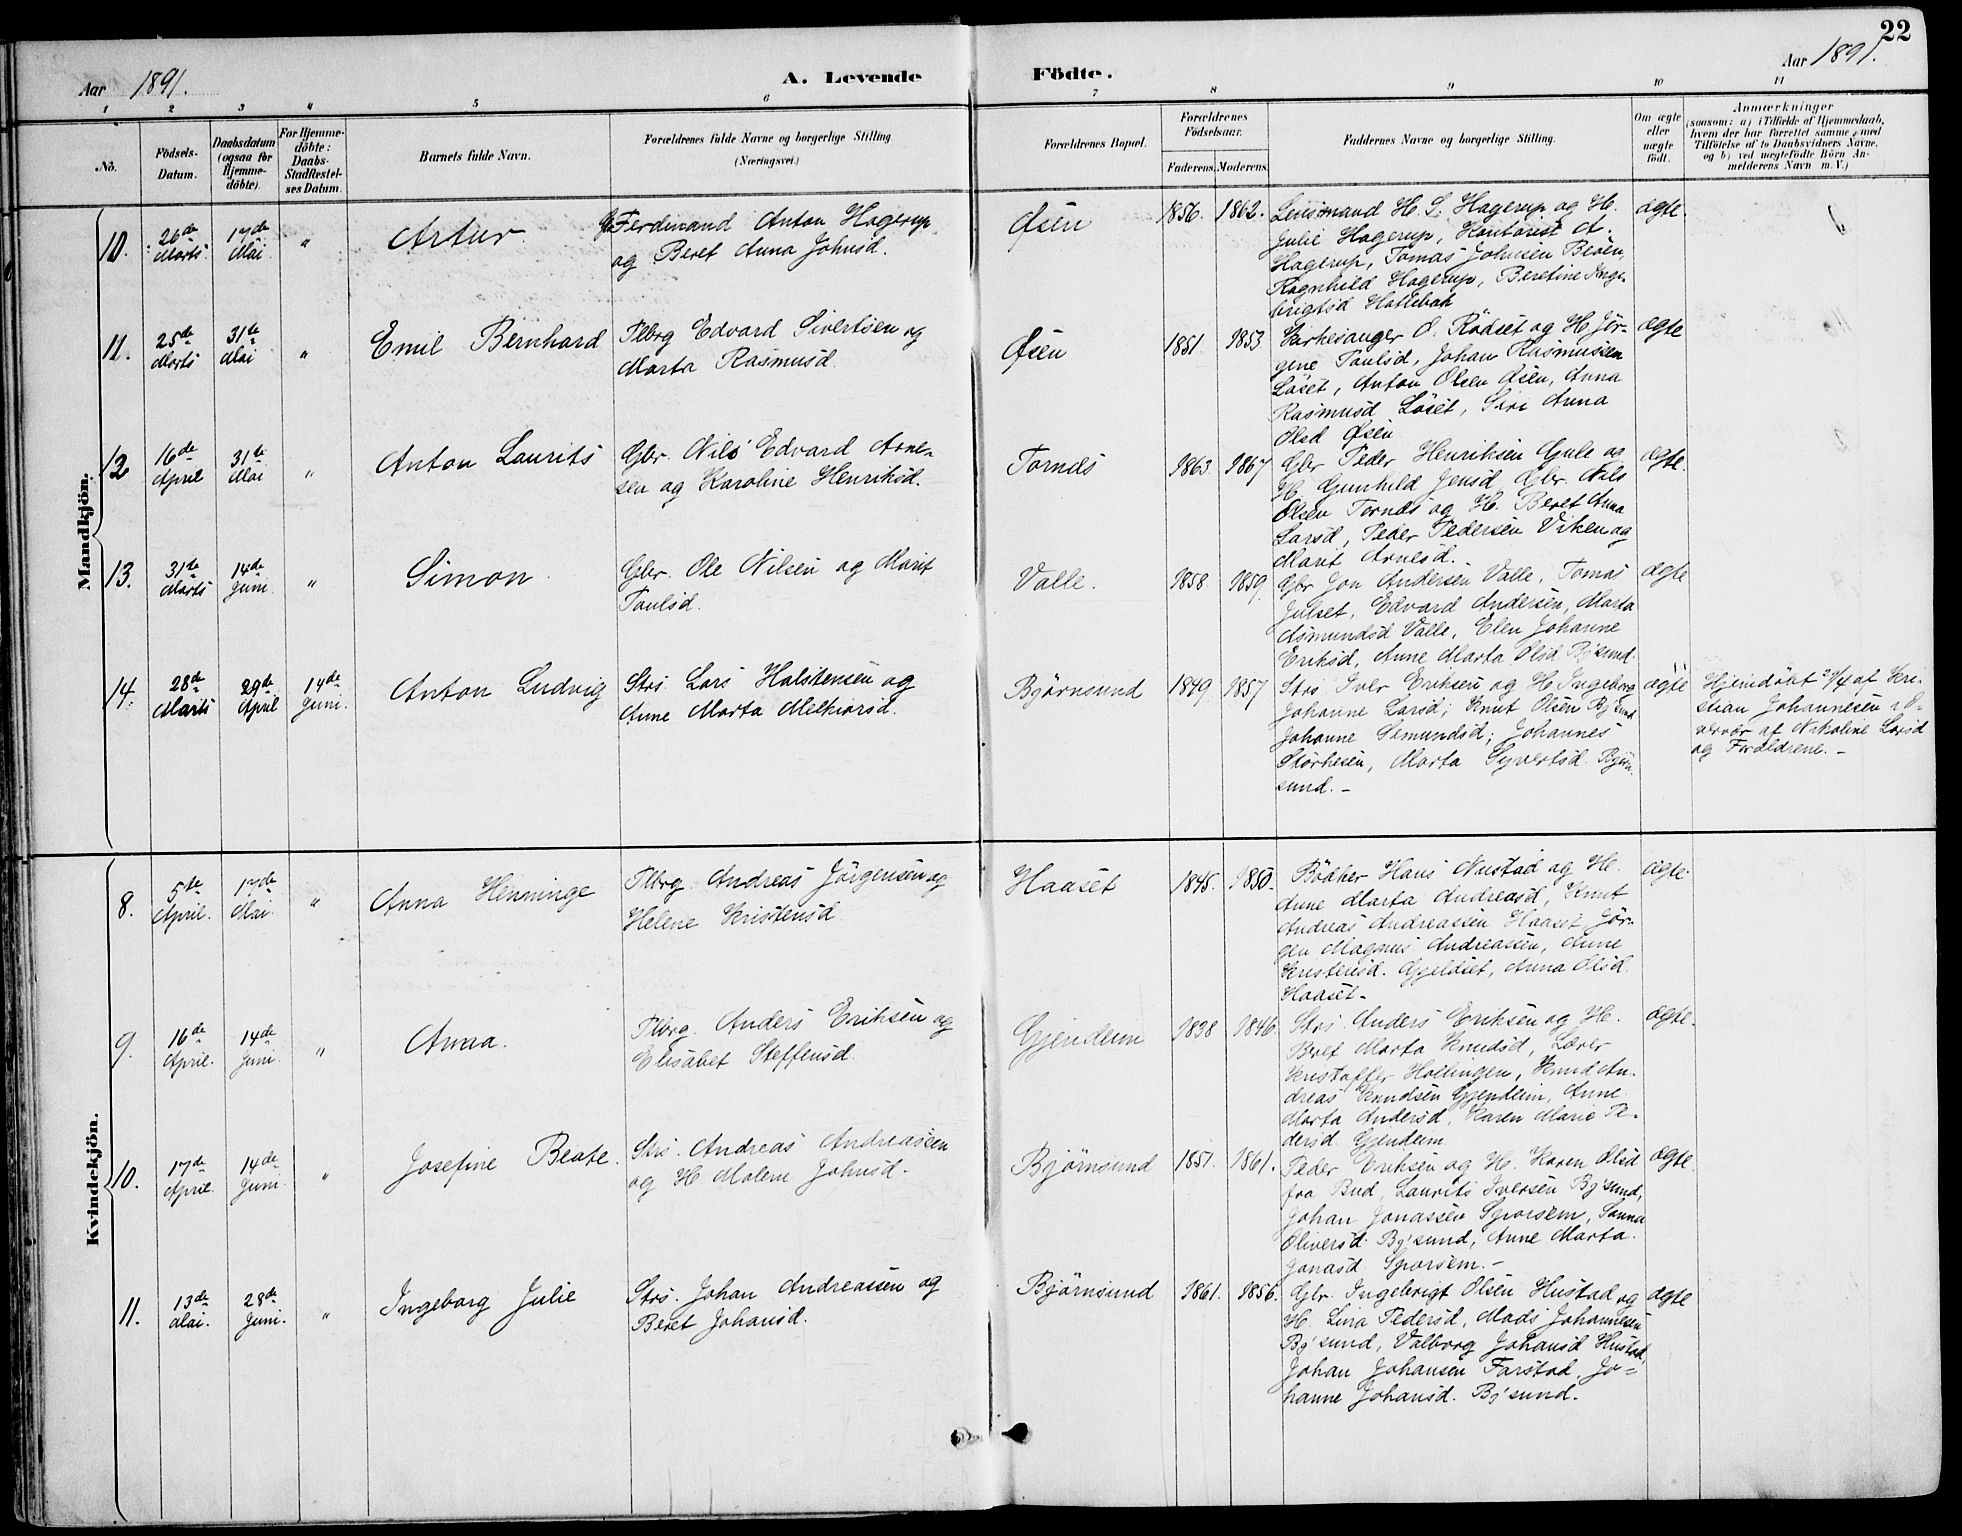 22
Aar 1891.
A. Levende Födte.
Aar 1891.
1 2 3 4 5 6 7 8 9 10 11
No.
Födsels-
Datum.
Daabsdatum
(ogsaa for
Hjemme-
döbte).
For Hjemme-
döbte:
Daabs-
Stadfestel-
ses Datum.
Barnets fulde Navn.
Forældrenes fulde Navne og borgerlige Stilling
(Næringsvei.)
Forældrenes Bopæl.
Forældrenes
Födselsaar.
Faderens. Moderens.
Faddernes Navne og borgerlige Stilling.
Om ægte
eller
uægte
födt.
Anmærkninger
(saasom: a) i Tilfælde af Hjemmedaab,
hvem der har forrettet samme med
Tilföielse af to Daabsvidners Navne,
og b) ved uægtefödte Börn An-
melderens Navn m. V.)
Mandkjön.
10.
26de
Marts
17de
Mai
"
Artur
Ferdinand Anton Hagerup
og Beret Anna Johnsd.
Øsen
1856. 1862.
Lensmand H. S. Hagerup og H.
Julie Hagerup, Kontorist A.
Hagerup, Tomas Johnsen Beöen,
Ragnhild Hagerup, Beretine Inge-
brigtsd Hattebak
ægte.
11.
25de
Marts
31te
Mai
"
Emil Bernhard
Plbrg Edvard Sivertsen og
Marta Rasmusd.
Øsen
1851 1853
Kirkesanger O. Rödset og H. Jör-
gine Paulsd, Johan Rasmussen
Löset, Anton Olsen Øsen, Anna
Rasmusd Löset, Siri Anna
Olsd Øsen
ægte
12
16de
April
31te
Mai
"
Anton Laurits
Gbr. Nils Edvard Arne-
sen og Karoline Henriksd.
Tornes
1863. 1867
Gbr Peder Henriksen Gule og
H. Gunhild Jensd, Gbr. Nils
Olsen Tornes og H. Beret Anna
Larsd, Peder Pedersen Viken og
Marit Arnesd.
ægte.
13.
31te
Marts
14de
Juni.
"
Simon
Gbr. Ole Nilsen og Marit
Paulsd.
Valle.
1858 1859.
Gbr Jon Andersen Valle, Tomas
Julset, Edvard Andersen, Marta
Asmundsd Valle, Elen Johanne
Eriksd, Anne Marta Olsd Bj'sund.
ægte
14.
28de
Marts
29de
April
14de
Juni.
Anton Ludvig
Strs. Lars Halstensen og
Anne Marta Melkiorsd.
Bjørnsund
1849 1857
Strs. Iver Eriksen og H. Ingeborg
Johanne Larsd; Knut Olsen Bj'sund
Johanne Semundsd; Johannes
Storkesen, Marta Syvertsd. Bjørn
sund. –
ægte
Hjemdöbt 29/4 af Kri-
stian Johannesen i O-
vervær af Nikoline Larsd
og Forældrene. –
Kvindekjön.
8.
5te
April.
17de
Mai.
"
Anna Henninge
Plbrg Andreas Jörgensen og
Helene Kristensd.
Haaset
1845. 1850.
Bödker Hans Naustad og H.
Anne Marta Andreasd, Knut
Andreas Andreassen Haaset Jör-
gen Magnus Andreassen, Anne
Kristensd. Gjeldset, Anna Olsd.
Haaset.
ægte.
9.
16de
April.
14de
Juni.
"
Anna.
Plbrg. Anders Eriksen og
Elisabet Steffensd.
Gjendem
1838 1846.
Strs. Anders Eriksen og H.
Beret Marta Knudsd, Lærer
Kristoffer Hollingen, Knud An-
dreas Knudsen Gjendem, Anne
Marta Andersd, Karen Marie Pe-
dersd Gjendem
ægte.
10.
17de
April.
14de
Juni.
"
Josefine Beate.
Strs. Andreas Andreassen
og H. Malene Johnsd.
Bjørnsund
1851. 1861.
Peder Eriksen og H. Karen Olsd
fra Bud, Laurits Iversen Bj'sund,
Johan Jonassen Sporsem, Sanna
Oliversd. Bj'sund, Anne Marta
Jonasd Sporsem. –
ægte.
11.
13de
Mai.
28de
Juni.
"
Ingeborg Julie
Strs. Johan Andreassen og
Beret Johansd.
Bjørnsund
1861. 1856.
Gbr. Ingebrigt Olsen Hustad og
H. Lina Pedersd, Mads Johannesen
Bj'sund, Valborg Johansd Hustad,
Johan Johansen Farstad, Jo-
hanne Johansd. Bj'sund.
ægte